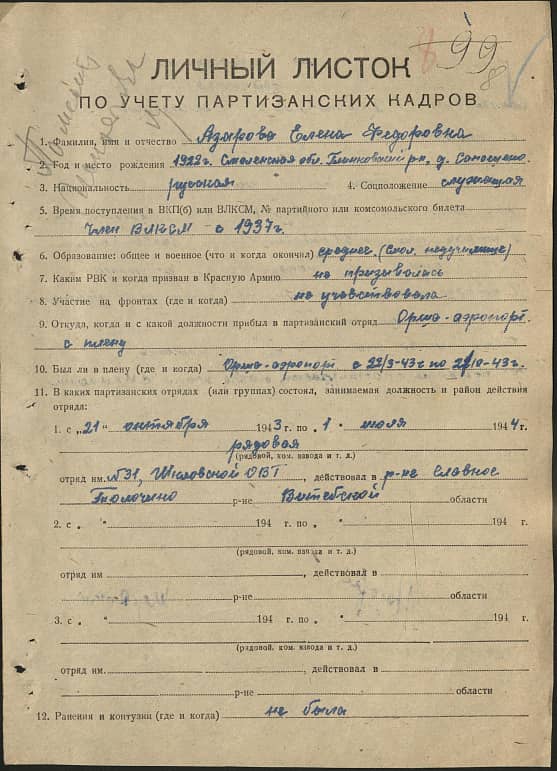 99
8
ЛИЧНЫЙ ЛИСТОК
ПО УЧЕТУ ПАРТИЗАНСКИХ КАДРОВ
1. Фамилия, имя и отчество Азарова Елена Федоровна
2. Год и место рождения 1922г. Смоленская обл. р-н, д.
3. Национальность русская 4. Соцположение служащая
5. Время поступления в ВКП(б) или ВЛКСМ, № партийного или комсомольского билета
член ВЛКСМ с 1937г.
6. Образование: общее и военное (что и когда окончил) среднее (Смол. педучилище)
7. Каким РВК и когда призван в Красную Армию не призывалась
8. Участие на фронтах (где и когда) не участвовала
9. Откуда, когда и с какой должности прибыл в партизанский отряд Орша-аэропорт
с плену
10. Был ли в плену (где и когда) Орша-аэропорт с 22/3-43г по 21/10-43г.
11. В каких партизанских отрядах (или группах) состоял, занимаемая должность и район действия
отряда:
1. с „21“ октября 1943 г. по „1“ июля 1944 г.
рядовая
(рядовой, ком. взвода и т. д.)
отряд им. №31, Шкловской ОВГ, действовал в р-не Славное
Толочино р-не Витебской области
2. с „ “ 194 г. по „ “ 194 г.
(рядовой, ком. взвода и т. д.)
отряд им , действовал в
р-не области
3. с „ “ 194 г. по „ “ 194 г.
(рядовой, ком. взвода и т. д.)
отряд им. , действовал в
р-не области
12. Ранения и контузии (где и когда) не была